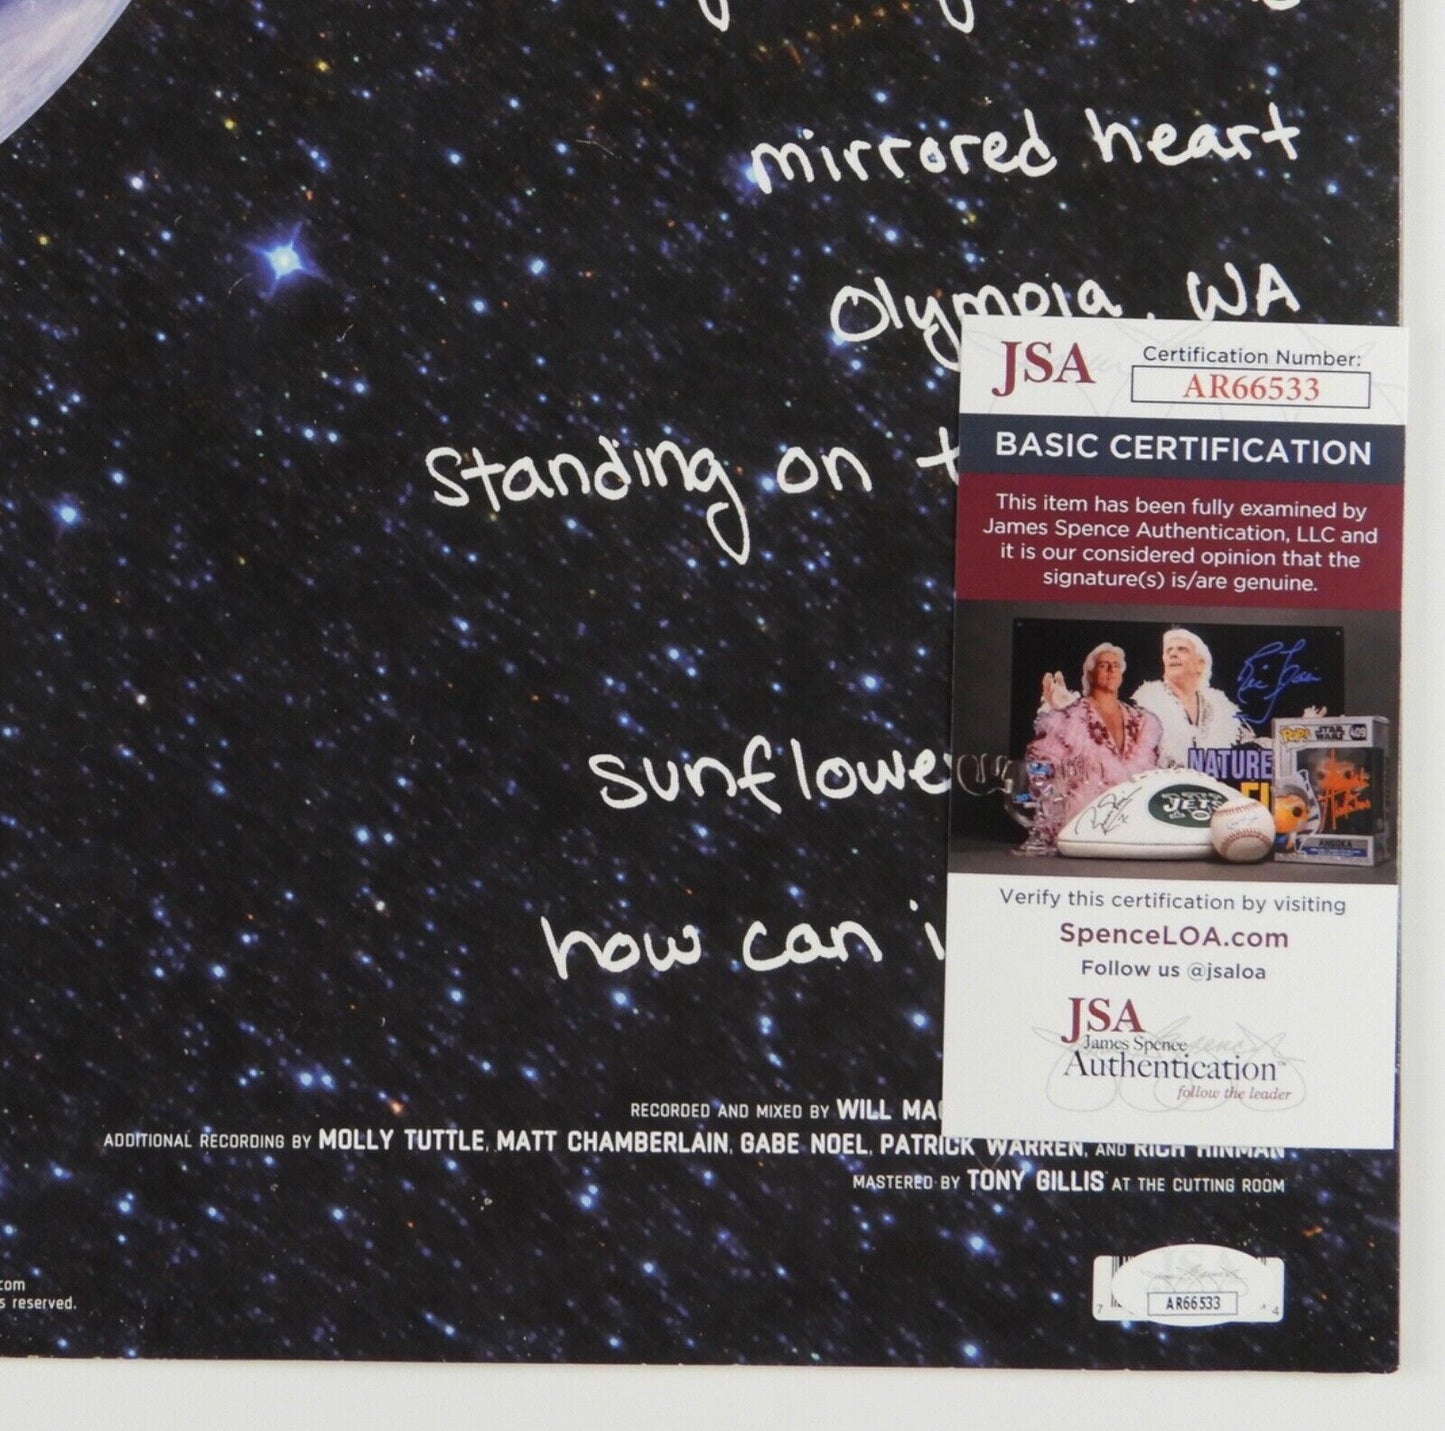 mirrored heart
Olympia, WA
standing on t
sunflowe
how can i
JSA
Certification Number:
AR66533
BASIC CERTIFICATION
This item has been fully examined by
James Spence Authentication, LLC and
it is our considered opinion that the
signature(s) is/are genuine.
POP!
STAR WARS
409
NATURE
JETS
AHSOKA
Verify this certification by visiting
SpenceLOA.com
Follow us @jsaloa
JSA
James Spence
Authentication™
follow the leader
RECORDED AND MIXED BY WILL MA
ADDITIONAL RECORDING BY MOLLY TUTTLE, MATT CHAMBERLAIN, GABE NOEL, PATRICK WARREN, AND RICH HINMAN
MASTERED BY TONY GILLIS AT THE CUTTING ROOM
com
s reserved.
AR66533
7 4